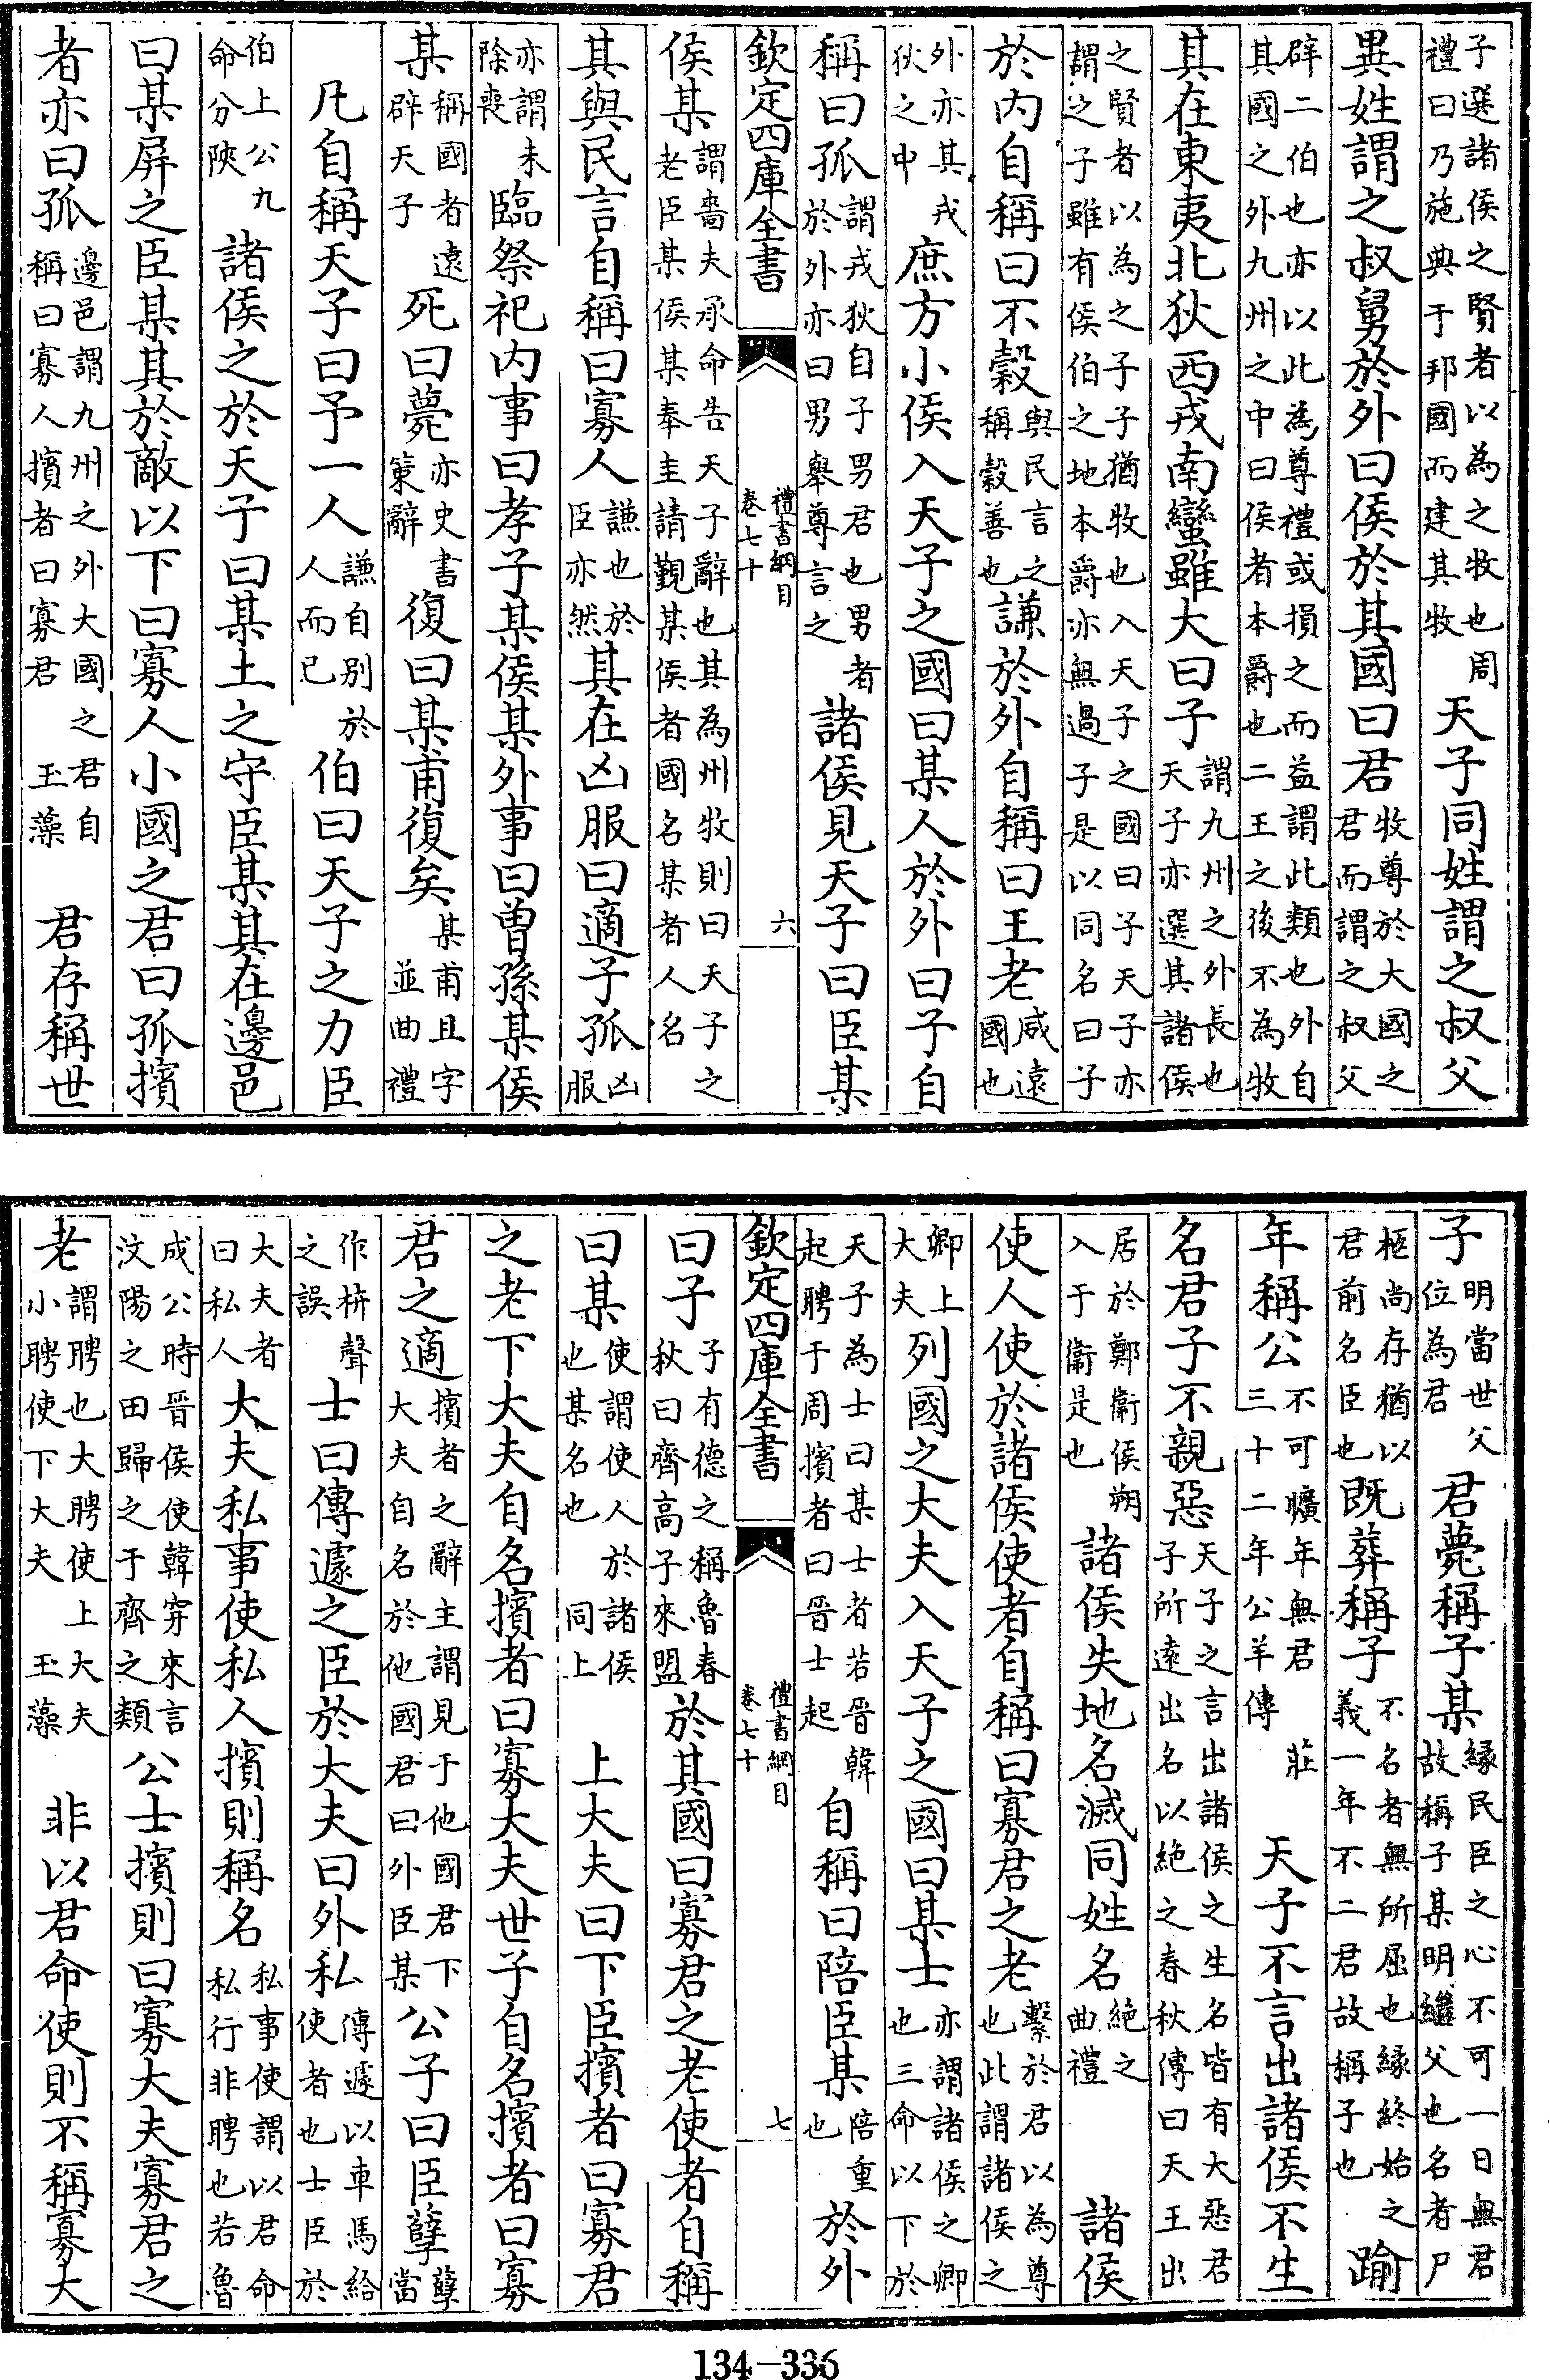 子選諸侯之賢者以為之牧也周禮曰乃施典于邦國而建其牧天子同姓謂之叔父
異姓謂之叔舅於外曰侯於其國曰君牧尊於大國之君而謂之叔父
辟二伯也亦以此為尊禮或損之而益謂此類也外自其國之外九州之中曰侯者本爵也二王之後不為牧
其在東夷北狄西戎南蠻雖大曰子謂九州之外長也天子亦選其諸侯
之賢者以為之子子猶牧也入天子之國曰子天子亦謂之子雖有侯伯之地本爵亦無過子是以同名曰子
於內自稱曰不穀與民言之謙稱穀善也於外自稱曰王老威遠國也
外亦其戎狄之中庶方小侯入天子之國曰某人於外曰子自
稱曰孤謂戎狄自子男君也男者於外亦曰男舉尊言之諸侯見天子曰臣某
欽定四庫全書 禮書綱目 卷七十 六
侯某謂嗇夫承命告天子辭也其為州牧則曰天子之老臣某侯某奉圭請覲某侯者國名某者人名
其與民言自稱曰寡人謙也於臣亦然其在凶服曰適子孤凶服
亦謂未除喪臨祭祀內事曰孝子某侯某外事曰曾孫某侯
某稱國者遠辟天子死曰薨亦史書策辭復曰某甫復矣某甫且字並曲禮
凡自稱天子曰予一人謙自別於人而已伯曰天子之力臣
伯上公九命分陝諸侯之於天子曰某土之守臣某其在邊邑
曰某屏之臣某其於敵以下曰寡人小國之君曰孤擯
者亦曰孤邊邑謂九州之外大國之君自稱曰寡人擯者曰寡君玉藻君存稱世
子明當世父位為君君薨稱子某緣民臣之心不可一日無君故稱子某明繼父也名者尸
柩尚存猶以君前名臣也既葬稱子不名者無所屈也緣終始之義一年不二君故稱子也踰
年稱公不可曠年無君三十二年公羊傳莊天子不言出諸侯不生
名君子不親惡天子之言出諸侯之生名皆有大惡君子所遠出名以絕之春秋傳曰天王出
居於鄭衛侯朔入于衛是也諸侯失地名滅同姓名絕之曲禮諸侯
使人使於諸侯使者自稱曰寡君之老繫於君以為尊也此謂諸侯之
卿上大夫列國之大夫入天子之國曰某士亦謂諸侯之卿也三命以下於
天子為士曰某士者若晉韓起聘于周擯者曰晉士起自稱曰陪臣某陪重也於外
欽定四庫全書 禮書綱目 卷七十 七
曰子子有德之稱魯春秋曰齊高子來盟於其國曰寡君之老使者自稱
曰某使謂使人於諸侯也某名也同上上大夫曰下臣擯者曰寡君
之老下大夫自名擯者曰寡大夫世子自名擯者曰寡
君之適擯者之辭主謂見于他國君下大夫自名於他國君曰外臣某公子曰臣孽孽當
作枿聲之誤士曰傳遽之臣於大夫曰外私傳遽以車馬給使者也士臣於
大夫者曰私人大夫私事使私人擯則稱名私事使謂以君命私行非聘也若魯
成公時晉侯使韓穿來言汶陽之田歸之于齊之類公士擯則曰寡大夫寡君之
老謂聘也大聘使上大夫小聘使下大夫玉藻非以君命使則不稱寡大
134-336